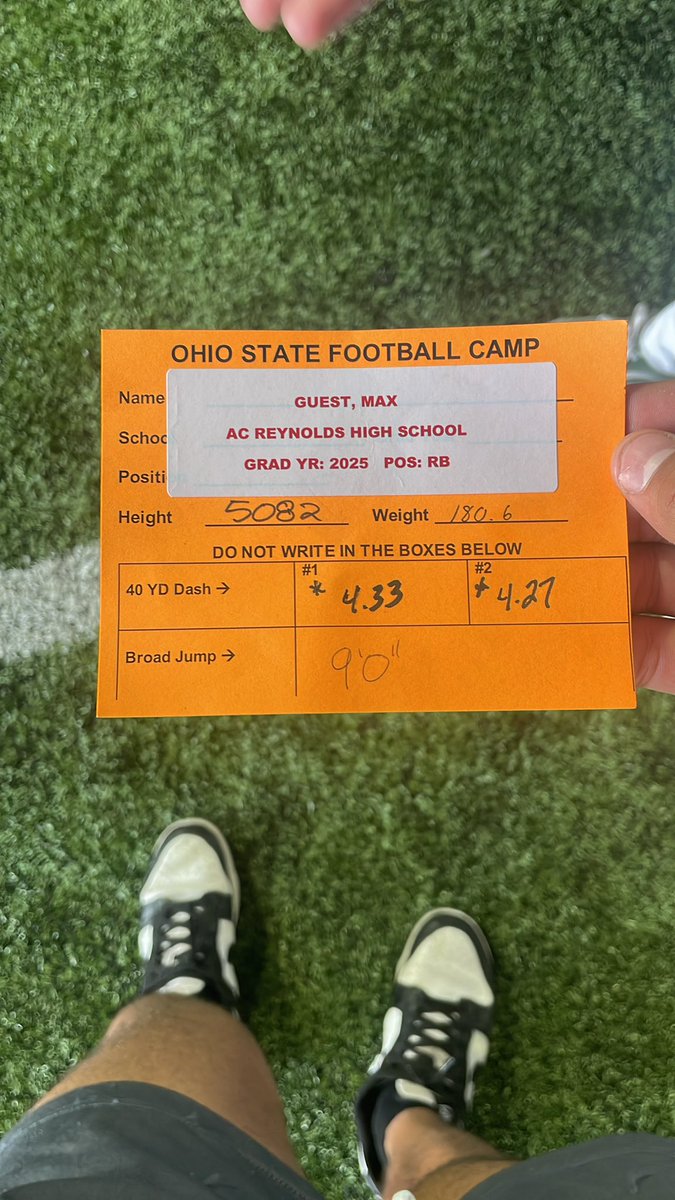 OHIO STATE FOOTBALL CAMP
Name
GUEST, MAX
Schoo
AC REYNOLDS HIGH SCHOOL
Positi
GRAD YR: 2025 POS: RB
Height 5082 Weight 180.6
DO NOT WRITE IN THE BOXES BELOW
40 YD Dash → #1 * 4.33 #2 * 4.27
Broad Jump → 9'0"